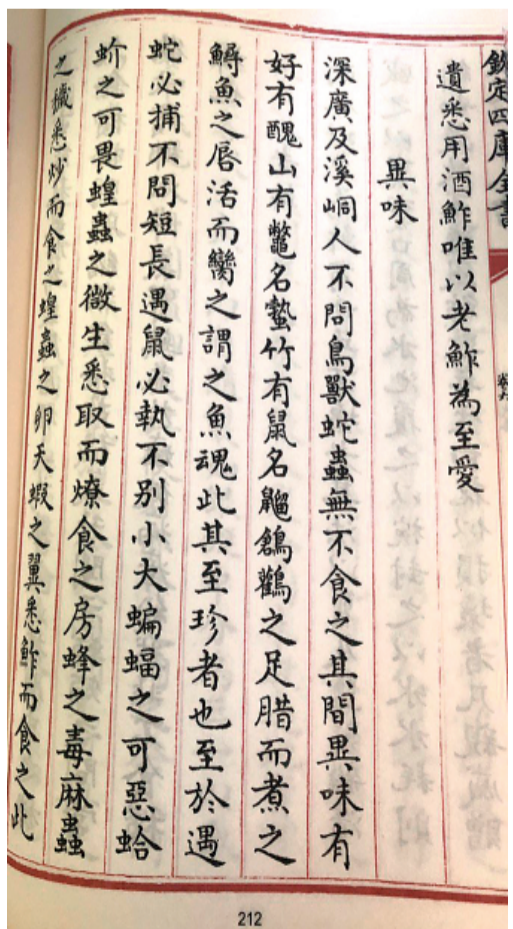 欽定四庫全書
遺悉用酒鮓唯以老鮓為至愛
異味
深廣及溪峒人不問鳥獸蛇蟲無不食之其間異味有
好有醜山有鼈名蟄竹有鼠名鼺鶬鸛之足腊而煮之
鱘魚之唇活而臠之謂之魚魂此其至珍者也至於遇
蛇必捕不問短長遇鼠必執不別小大蝙蝠之可惡蛤
蚧之可畏蝗蟲之微生悉取而燎食之房蜂之毒麻蟲
之穢悉炒而食之蝗蟲之卵天蝦之翼悉鮓而食之此
212